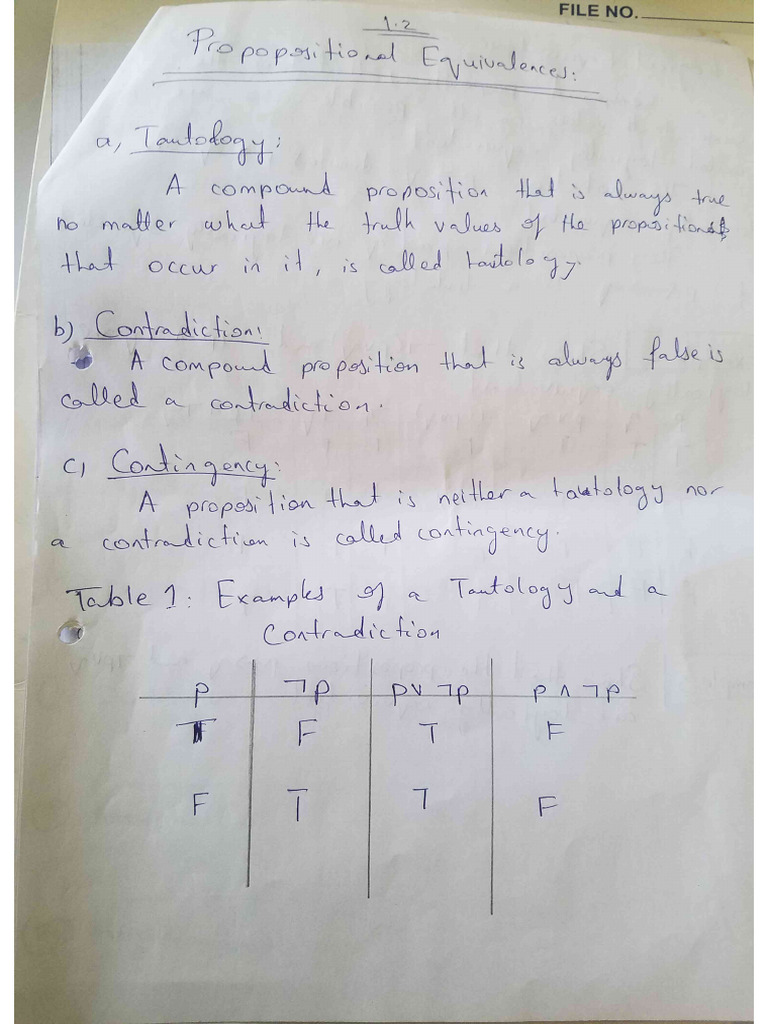 FILE NO.
1.2
Propopositional Equivalences:
a, Tautology:
A compound proposition that is always true
no matter what the truth values of the propositions
that occur in it, is called tautology.
b) Contradiction:
A compound proposition that is always false is
called a contradiction.
c) Contingency:
A proposition that is neither a tautology nor
a contradiction is called contingency.
Table 1: Examples of a Tautology and a
Contradiction
p ¬p p∨¬p p∧¬p
T F T F
F T T F